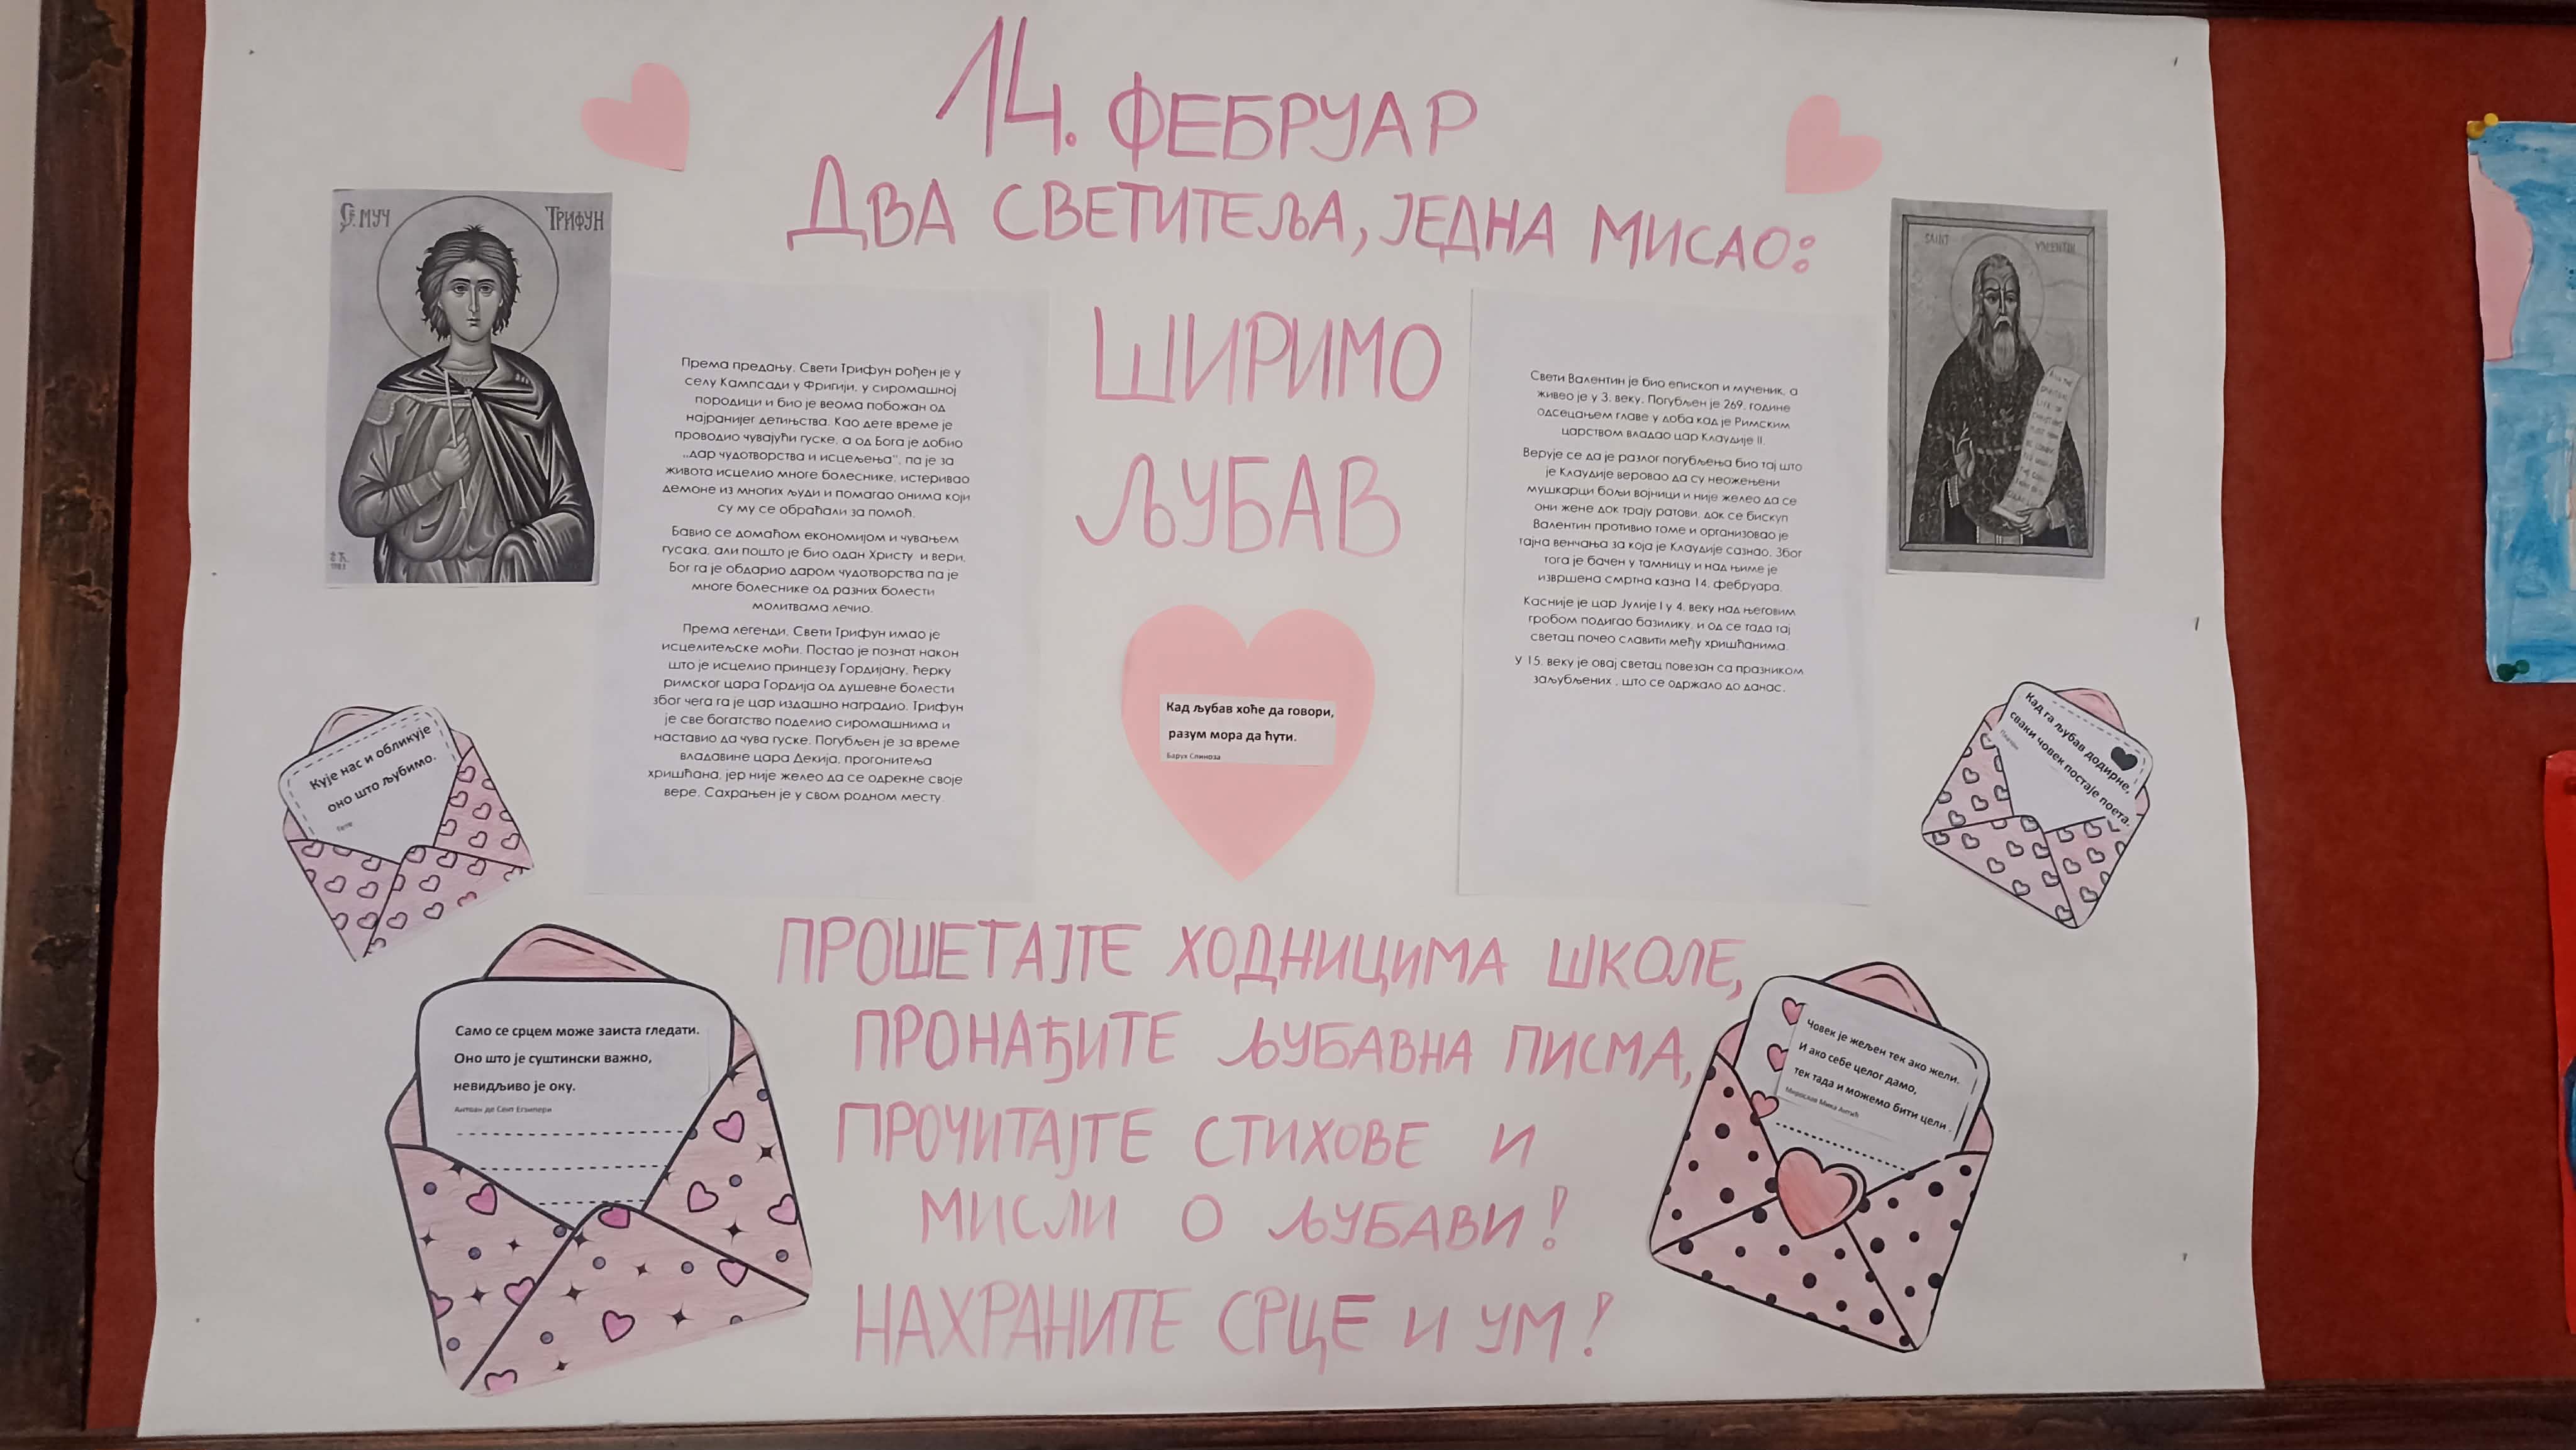 14. ФЕБРУАР
ДВА СВЕТИТЕЉА, ЈЕДНА МИСАО:
ШИРИМО
ЉУБАВ
СВ. МУЧ ТРИФУН
Према предању, Свети Трифун рођен је у
селу Кампсади у Фригији, у сиромашној
породици и био је веома побожан од
најранијег детињства. Као дете време је
проводио чувајући гуске, а од Бога је добио
„дар чудотворства и исцељења“, па је за
живота исцелио многе болеснике, истеривао
демоне из многих људи и помагао онима који
су му се обраћали за помоћ.
Бавио се домаћом економијом и чувањем
гусака, али пошто је био одан Христу и вери,
Бог га је обдарио даром чудотворства па је
многе болеснике од разних болести
молитвама лечио.
Према легенди, Свети Трифун имао је
исцелитељске моћи. Постао је познат након
што је исцелио принцезу Гордијану, ћерку
римског цара Гордија од душевне болести
због чега га је цар издашно наградио. Трифун
је све богатство поделио сиромашнима и
наставио да чува гуске. Погубљен је за време
владавине цара Декија, прогонитеља
хришћана, јер није желео да се одрекне своје
вере. Сахрањен је у свом родном месту.
Кад љубав хоће да говори,
разум мора да ћути.
Барух Спиноза
SAINT VALENTIN
Свети Валентин је био епископ и мученик, а
живео је у 3. веку. Погубљен је 269. године
одсецањем главе у доба кад је Римским
царством владао цар Клаудије II.
Верује се да је разлог погубљења био тај што
је Клаудије веровао да су неожењени
мушкарци бољи војници и није желео да се
они жене док трају ратови, док се бискуп
Валентин противио томе и организовао је
тајна венчања за која је Клаудије сазнао. Због
тога је бачен у тамницу и над њиме је
извршена смртна казна 14. фебруара.
Касније је цар Јулије I у 4. веку над његовим
гробом подигао базилику, и од се тада тај
светац почео славити међу хришћанима.
У 15. веку је овај светац повезан са празником
заљубљених , што се одржало до данас.
Кује нас и обликује
оно што љубимо.
Гете
Кад га љубав додирне,
сваки човек постаје поета.
Платон
Само се срцем може заиста гледати.
Оно што је суштински важно,
невидљиво је оку.
Антоан де Сент Егзипери
Човек је жељен тек ако жели.
И ако себе целог дамо,
тек тада и можемо бити цели .
Мирослав Мика Антић
ПРОШЕТАЈТЕ ХОДНИЦИМА ШКОЛЕ,
ПРОНАЂИТЕ ЉУБАВНА ПИСМА,
ПРОЧИТАЈТЕ СТИХОВЕ И
МИСЛИ О ЉУБАВИ!
НАХРАНИТЕ СРЦЕ И УМ!